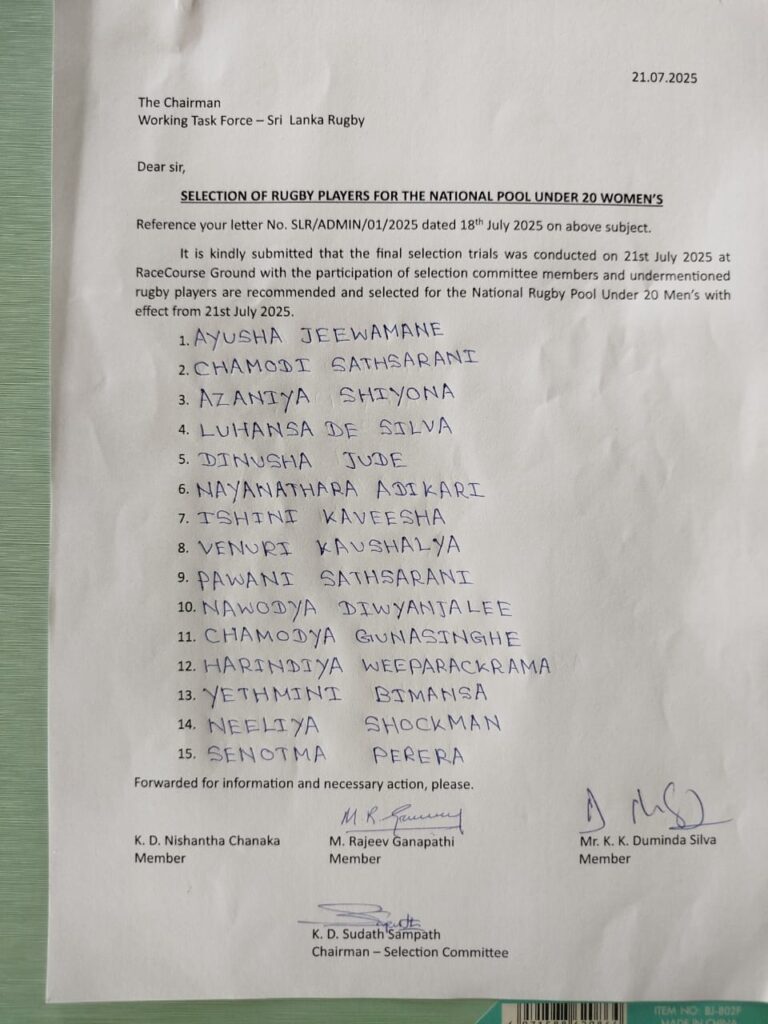 21.07.2025
The Chairman
Working Task Force – Sri Lanka Rugby
Dear sir,
SELECTION OF RUGBY PLAYERS FOR THE NATIONAL POOL UNDER 20 WOMEN'S
Reference your letter No. SLR/ADMIN/01/2025 dated 18th July 2025 on above subject.
It is kindly submitted that the final selection trials was conducted on 21st July 2025 at
RaceCourse Ground with the participation of selection committee members and undermentioned
rugby players are recommended and selected for the National Rugby Pool Under 20 Men's with
effect from 21st July 2025.
1. AYUSHA JEEWAMANE
2. CHAMODI SATHSARANI
3. AZANIYA SHIYONA
4. LUHANSA DE SILVA
5. DINUSHA JUDE
6. NAYANATHARA ADIKARI
7. ISHINI KAVEESHA
8. VENURI KAUSHALYA
9. PAWANI SATHSARANI
10. NAWODYA DIWYANJALEE
11. CHAMODYA GUNASINGHE
12. HARINDIYA WEEPARACKRAMA
13. YETHMINI BIMANSA
14. NEELIYA SHOCKMAN
15. SENOTMA PERERA
Forwarded for information and necessary action, please.
K. D. Nishantha Chanaka M. Rajeev Ganapathi Mr. K. K. Duminda Silva
Member Member Member
K. D. Sudath Sampath
Chairman – Selection Committee
ITEM NO: BJ-802F
MADE IN CHINA